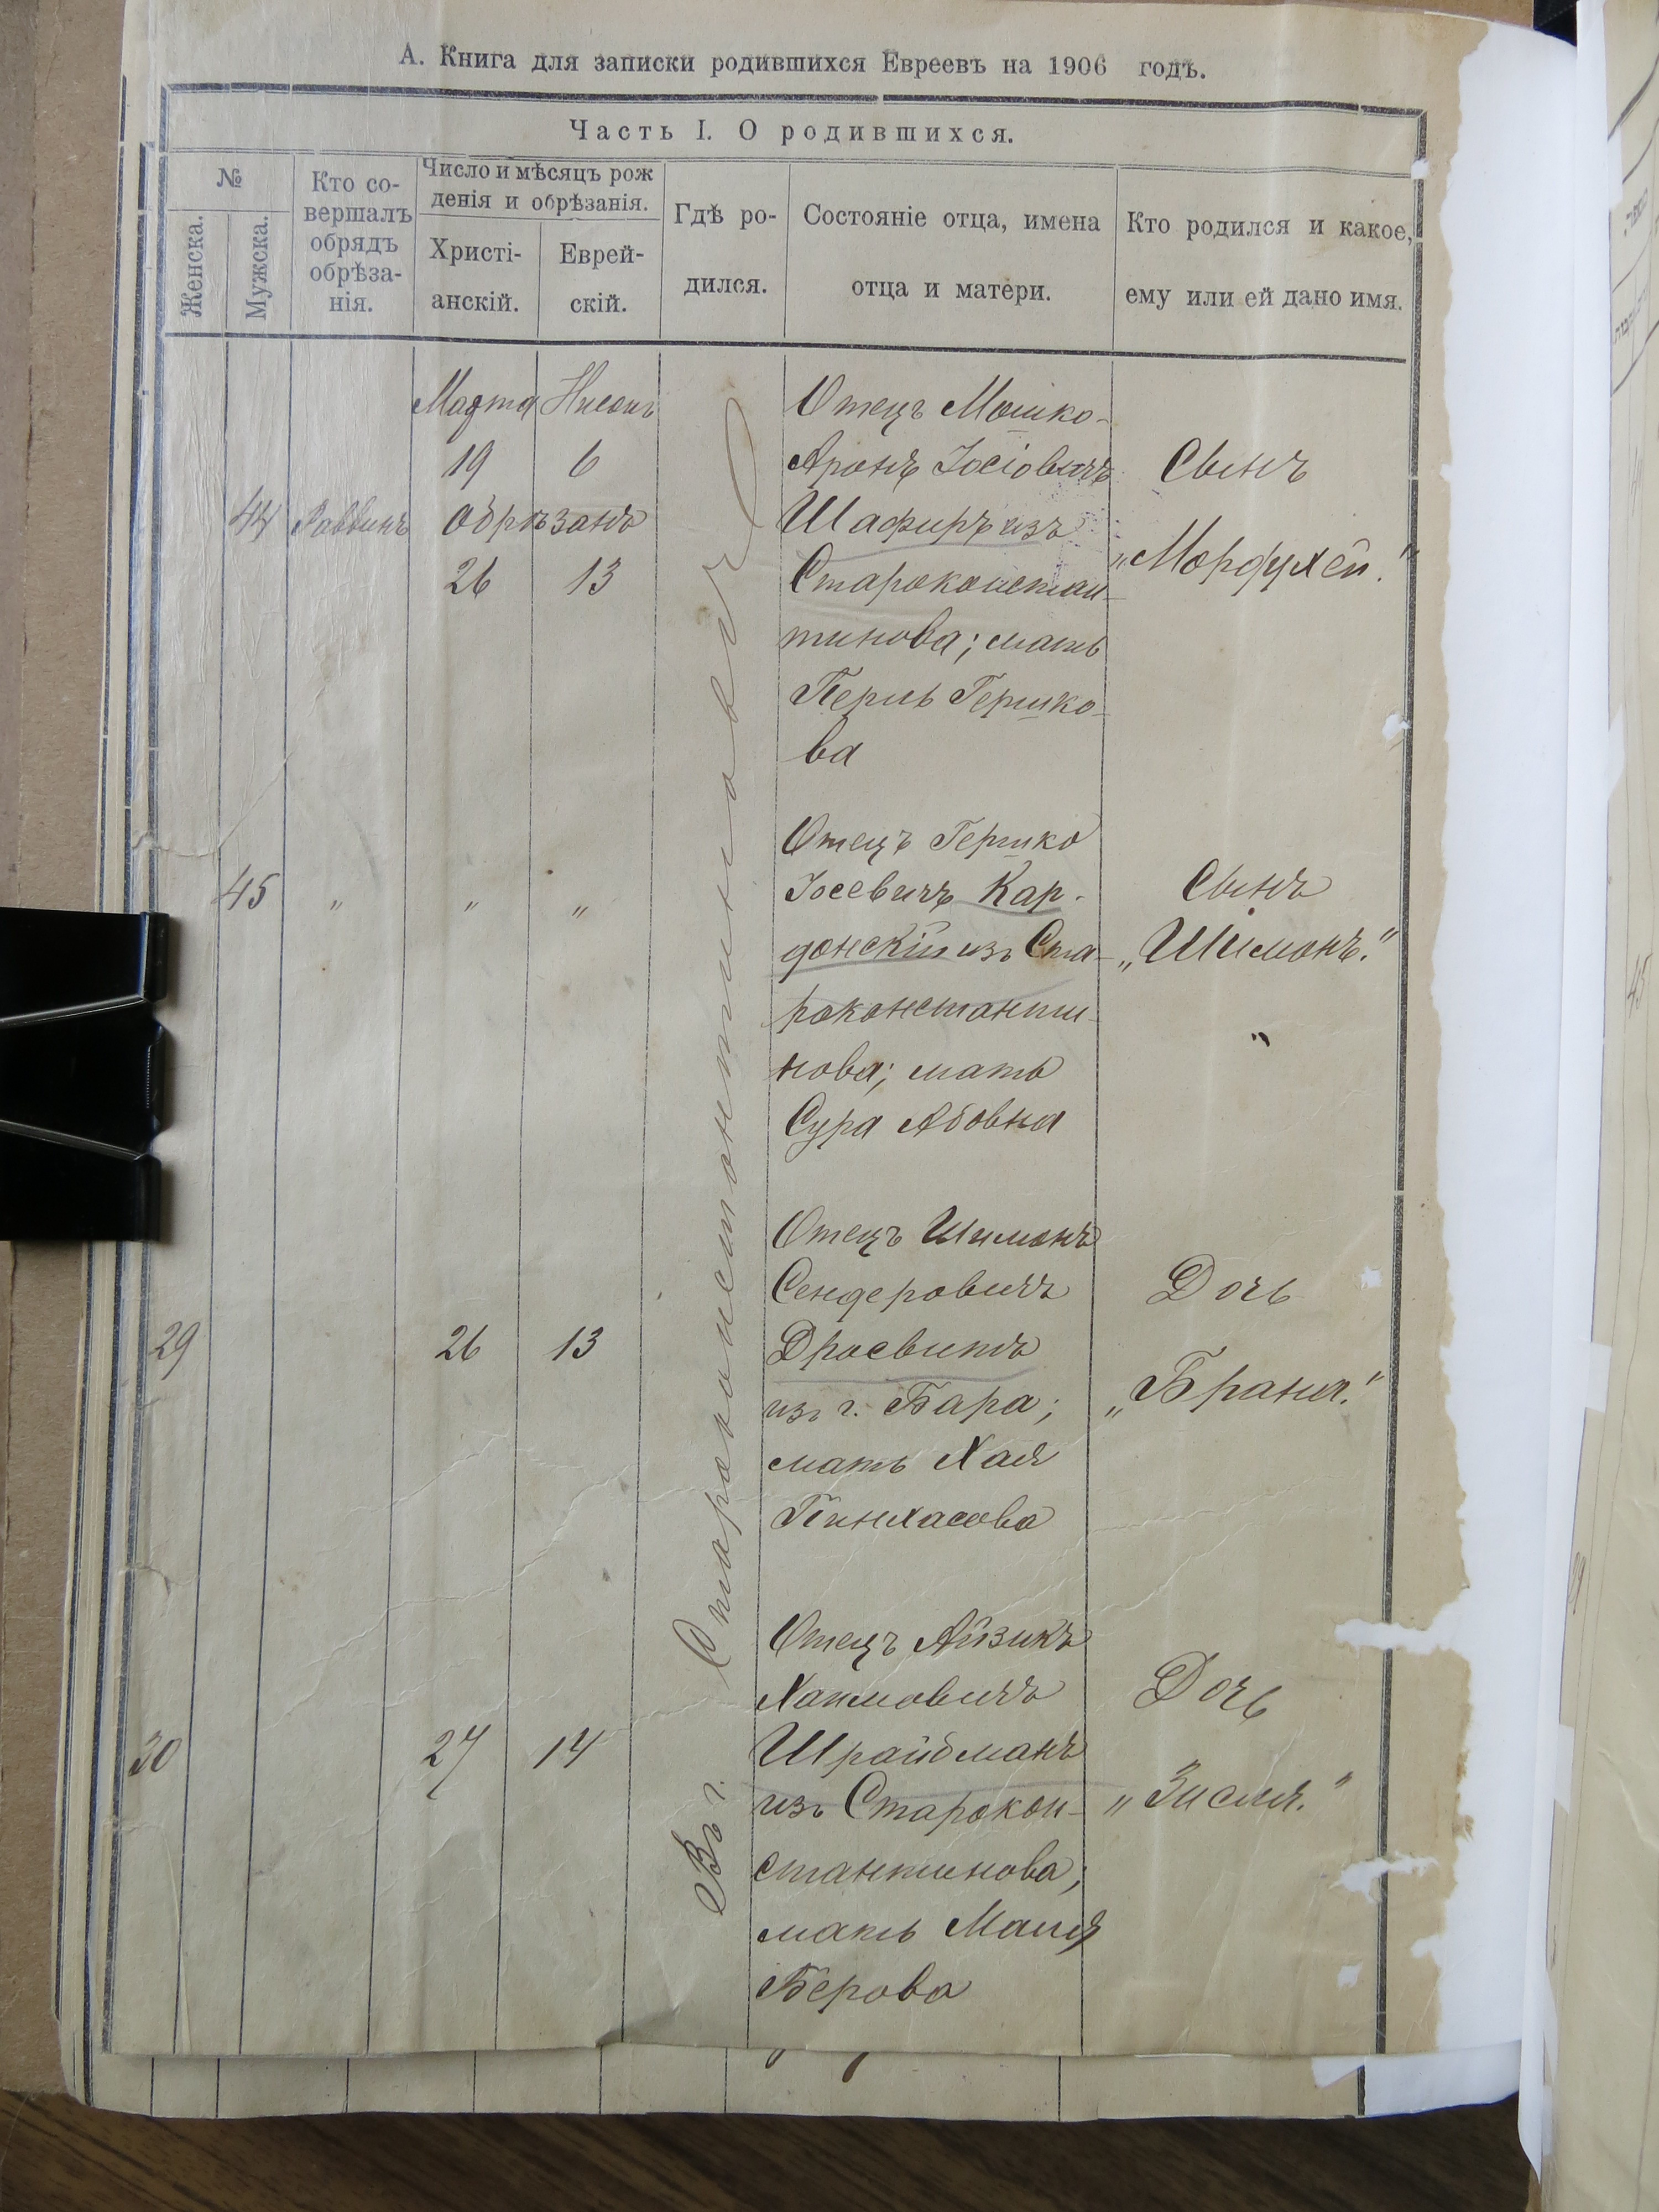 А. Книга для записки родившихся Евреевъ на 1906 годъ.
Часть I. О родившихся.
№
Женска.
Мужска.
Кто со-
вершалъ
обрядъ
обрѣза-
нія.
Число и мѣсяцъ рож
денія и обрѣзанія.
Христі-
анскій.
Еврей-
скій.
Гдѣ ро-
дился.
Состояніе отца, имена
отца и матери.
Кто родился и какое,
ему или ей дано имя.
Въ г. Староконстантиновѣ
Марта Нисонъ
19 6
44 Раввинъ Обрѣзанъ
26 13
Отецъ Мошко-
Аронъ Іосіовичъ
Шафиръ изъ
Староконстан-
тинова; мать
Перль Гершко-
ва
Сынъ
„Мордухей."
45 „ „ „
Отецъ Гершко
Іосевичъ Кар-
донскій изъ Ста-
роконстанти-
нова; мать
Сура Абовна
Сынъ
„Шимонъ."
29 26 13
Отецъ Шимонъ
Сендеровичъ
Драсвитъ
изъ г. Бара;
мать Хая
Пинхасова
Дочь
„Браня."
30 27 14
Отецъ Айзикъ
Хаимовичъ
Шрайбманъ
изъ Старокон-
стантинова;
мать Маня
Берова
Дочь
„Зисля."